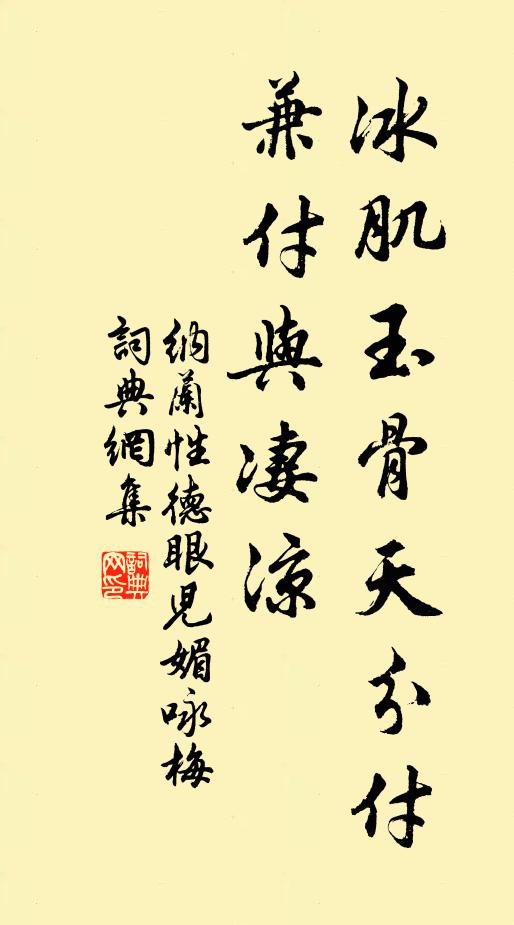 冰肌玉骨天分付
兼付與凄涼
納蘭性德眼兒媚咏梅
詞典網集
詞典网印